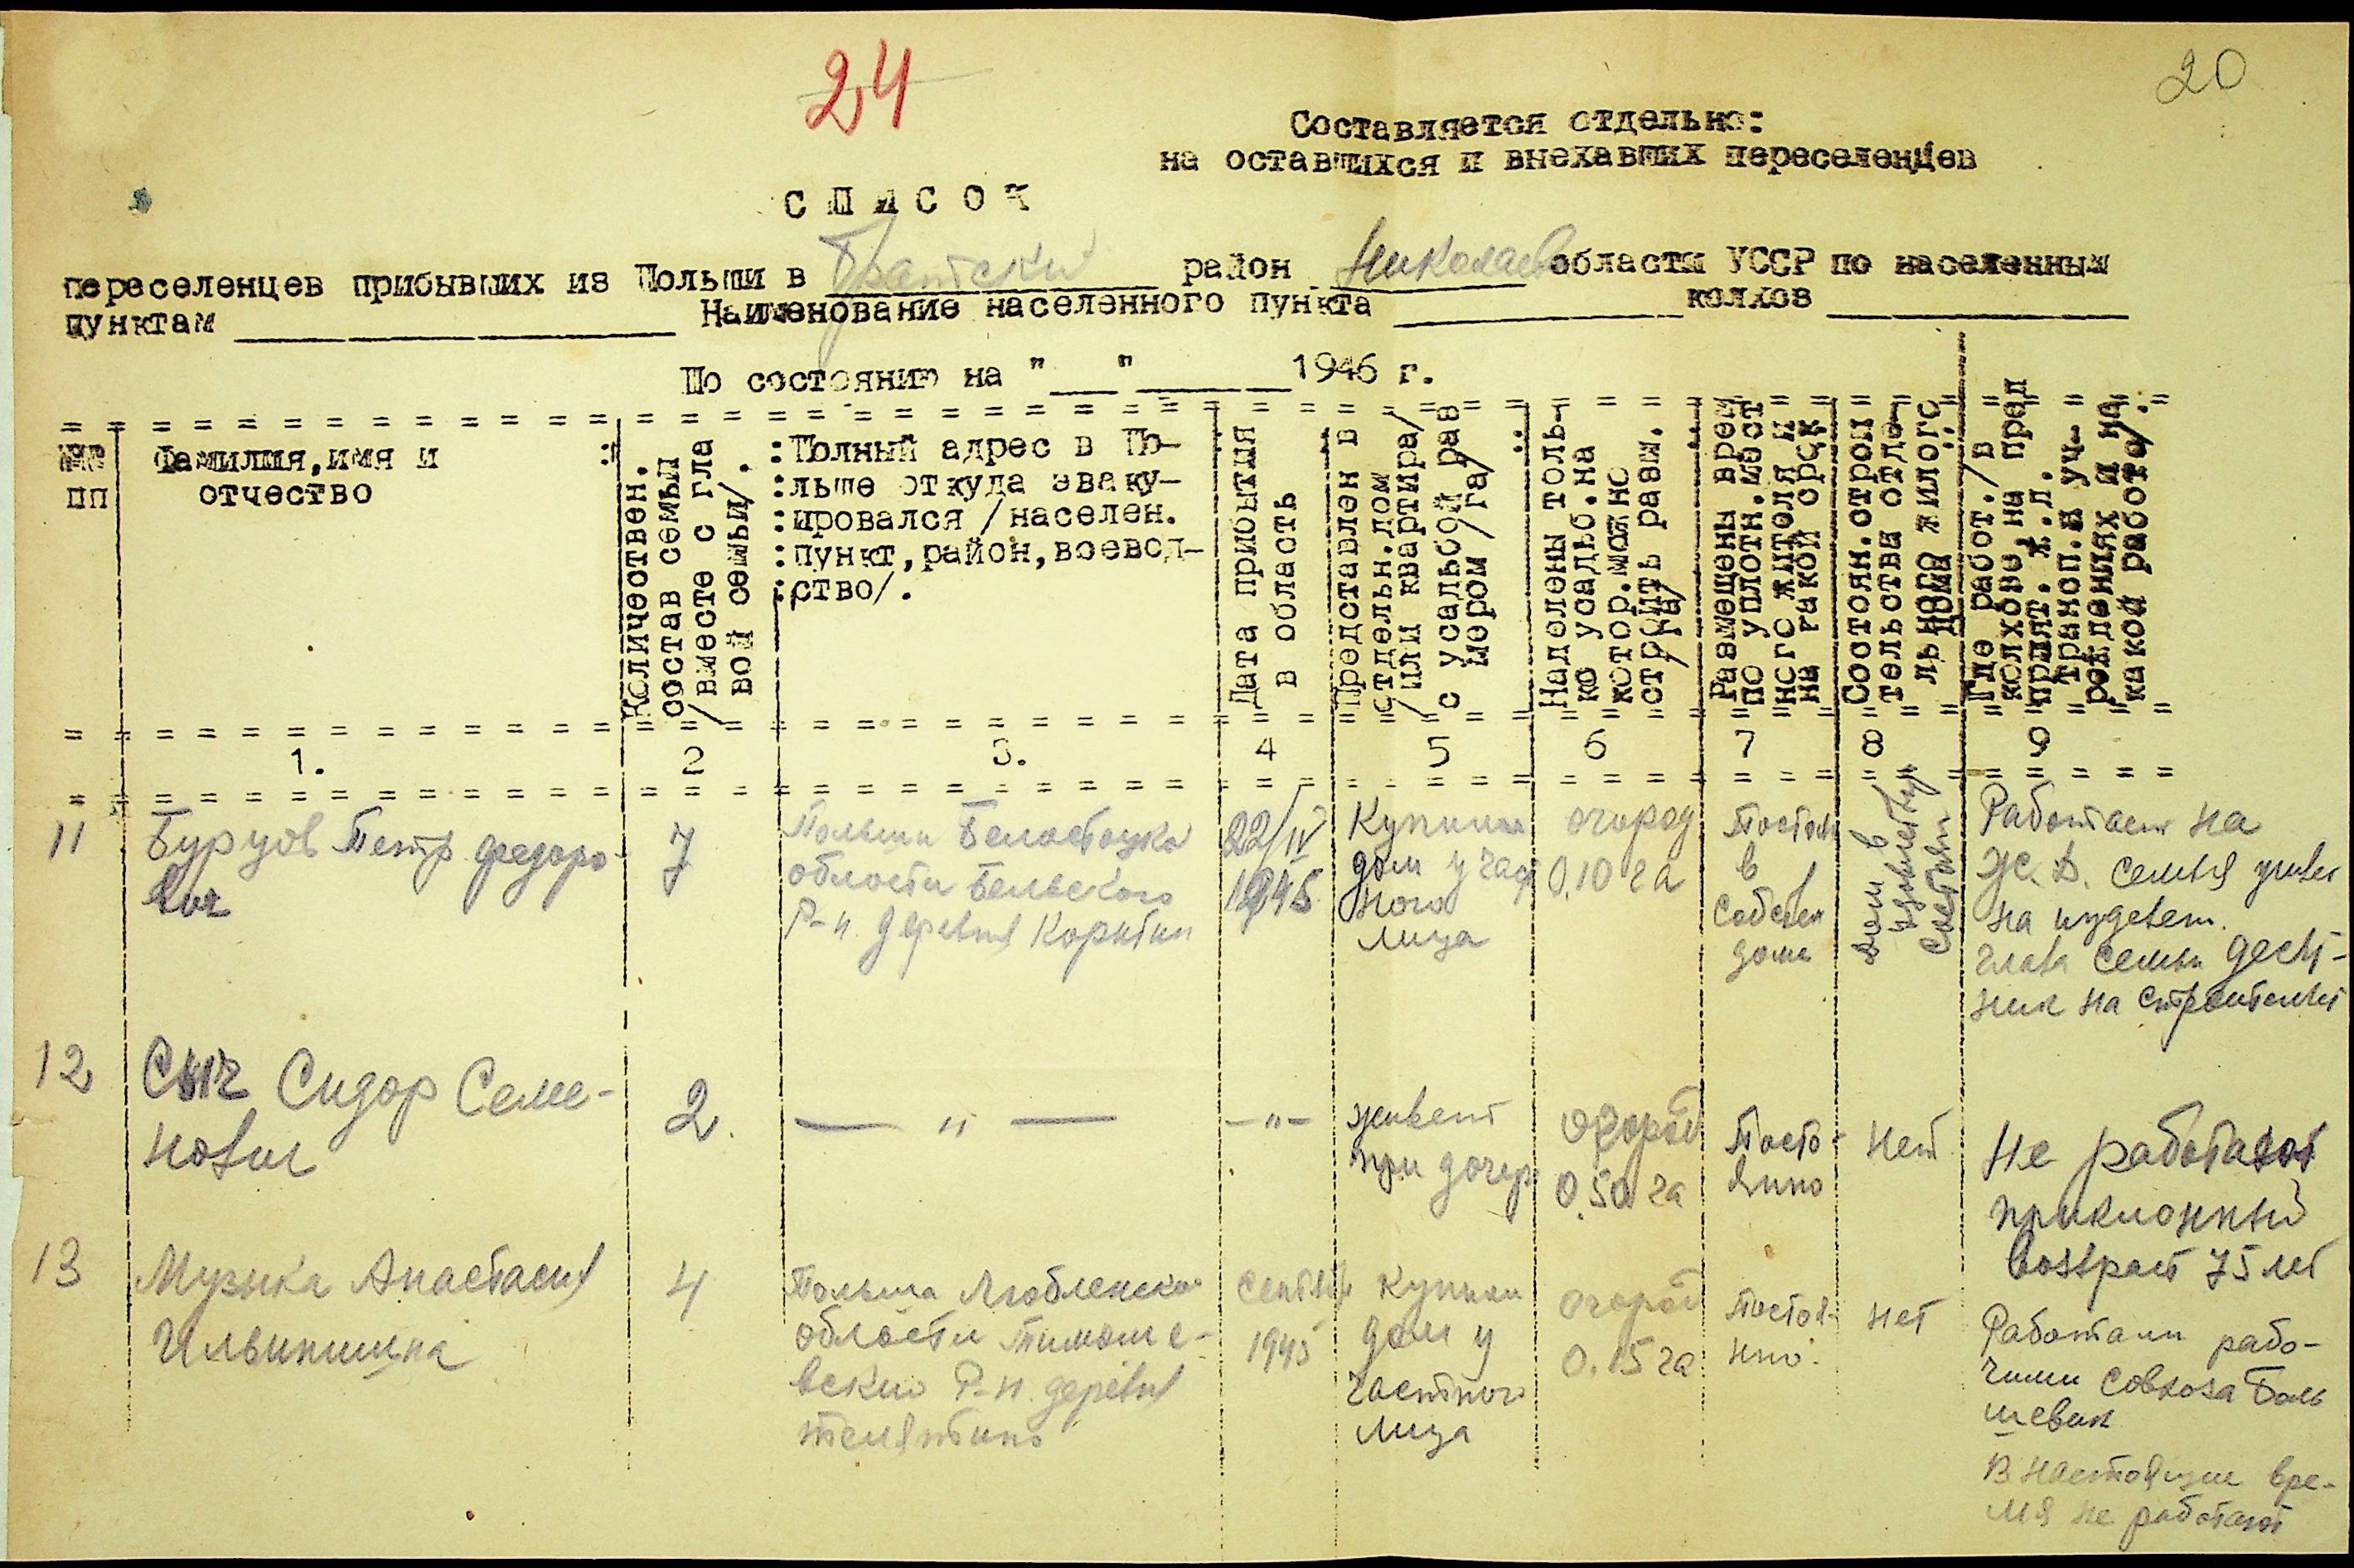 24
20
Составляется отдельно:
на оставшихся и внехавших переселенцев
С П И С О К
переселенцев прибывших из Польши в Братский район Николаев области УССР по населенным
пунктам Наименование населенного пункта колхоз
По состоянию на " " 1946 г.
№№
пп
Фамилия, имя и
отчество
Количествен.
состав семьи
/вместе с гла
вой семьи/.
:Полный адрес в По-
:льше откуда эваку-
:ировался /населен.
:пункт, район, воевод-
:ство/.
Дата прибытия
в область
Представлен в
отдельн. дом
/или квартира/
с усадьбой раз
мером /га/
Наделены толь-
ко усадьб. на
котор. можно
строить разм.
/га/
Размещены врем
по уплотн. мест
ного жителя и
на какой срок
Состоян. строи
тельства отде-
льного жилого
дома
Где работ. /в
колхозе, на пред
прият. ж.д.
трансп. и уч-
реждениях и на
какой работе/.
1. 2 3. 4 5 6 7 8 9
11
Бурцов Петр Федоро-
вич
7
Польши Белостоцко
области Бельского
Р-н. деревня Корытин
22/IV
1945
Купили
дом у час
ного
лица
огород
0,10 га
Постоя
в
собствен
доме
дом в
Работает на
Ж. Д. семья живет
на иждевен.
глава семьи десят-
ник на строительст
12
Сыч Сидор Семе-
нович
2.
— " —
-"-
живет
при дочери
огород
0,50 га
Посто-
янно
нет
Не работают
приклонный
возраст 75 лет
13
Музыка Анастасия
Ильинишна
4
Польша Любленско
области Тимоше-
вский Р-н. деревня
Телятино
Сентябр
1945
Купили
дом у
частного
лица
огород
0.15 га
Постоя-
нно.
нет
Работали рабо-
чими совхоза Боль
шевик
В настоящие вре-
мя не работают